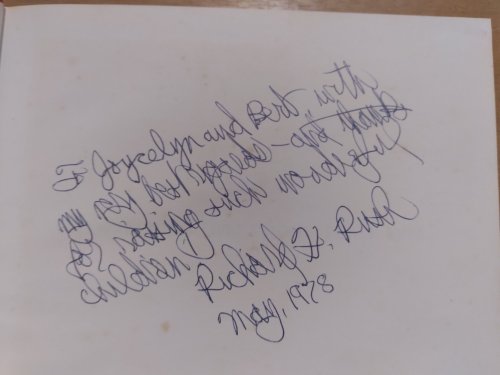 To Joycelyn and Bert, with
my best regards - and thanks
for raising such wonderful
children
Richard H. Rush
May, 1978